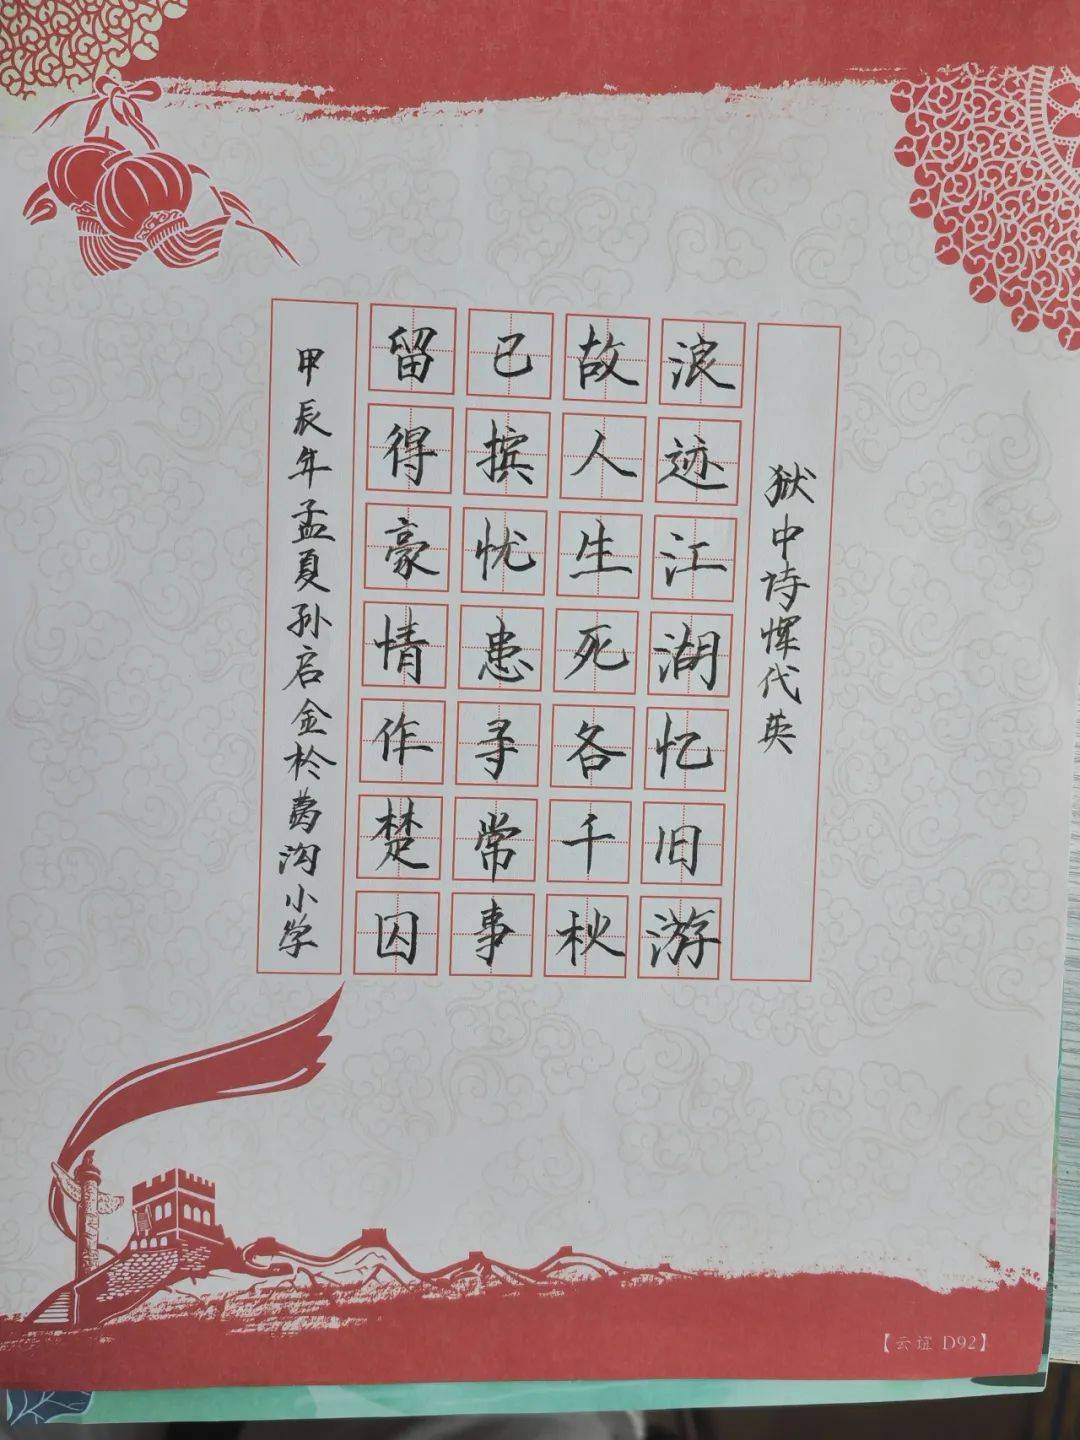 狱中诗恽代英
浪迹江湖忆旧游
故人生死各千秋
已摈忧患寻常事
留得豪情作楚囚
甲辰年孟夏孙启金於蒍沟小学
【云谊 D92】